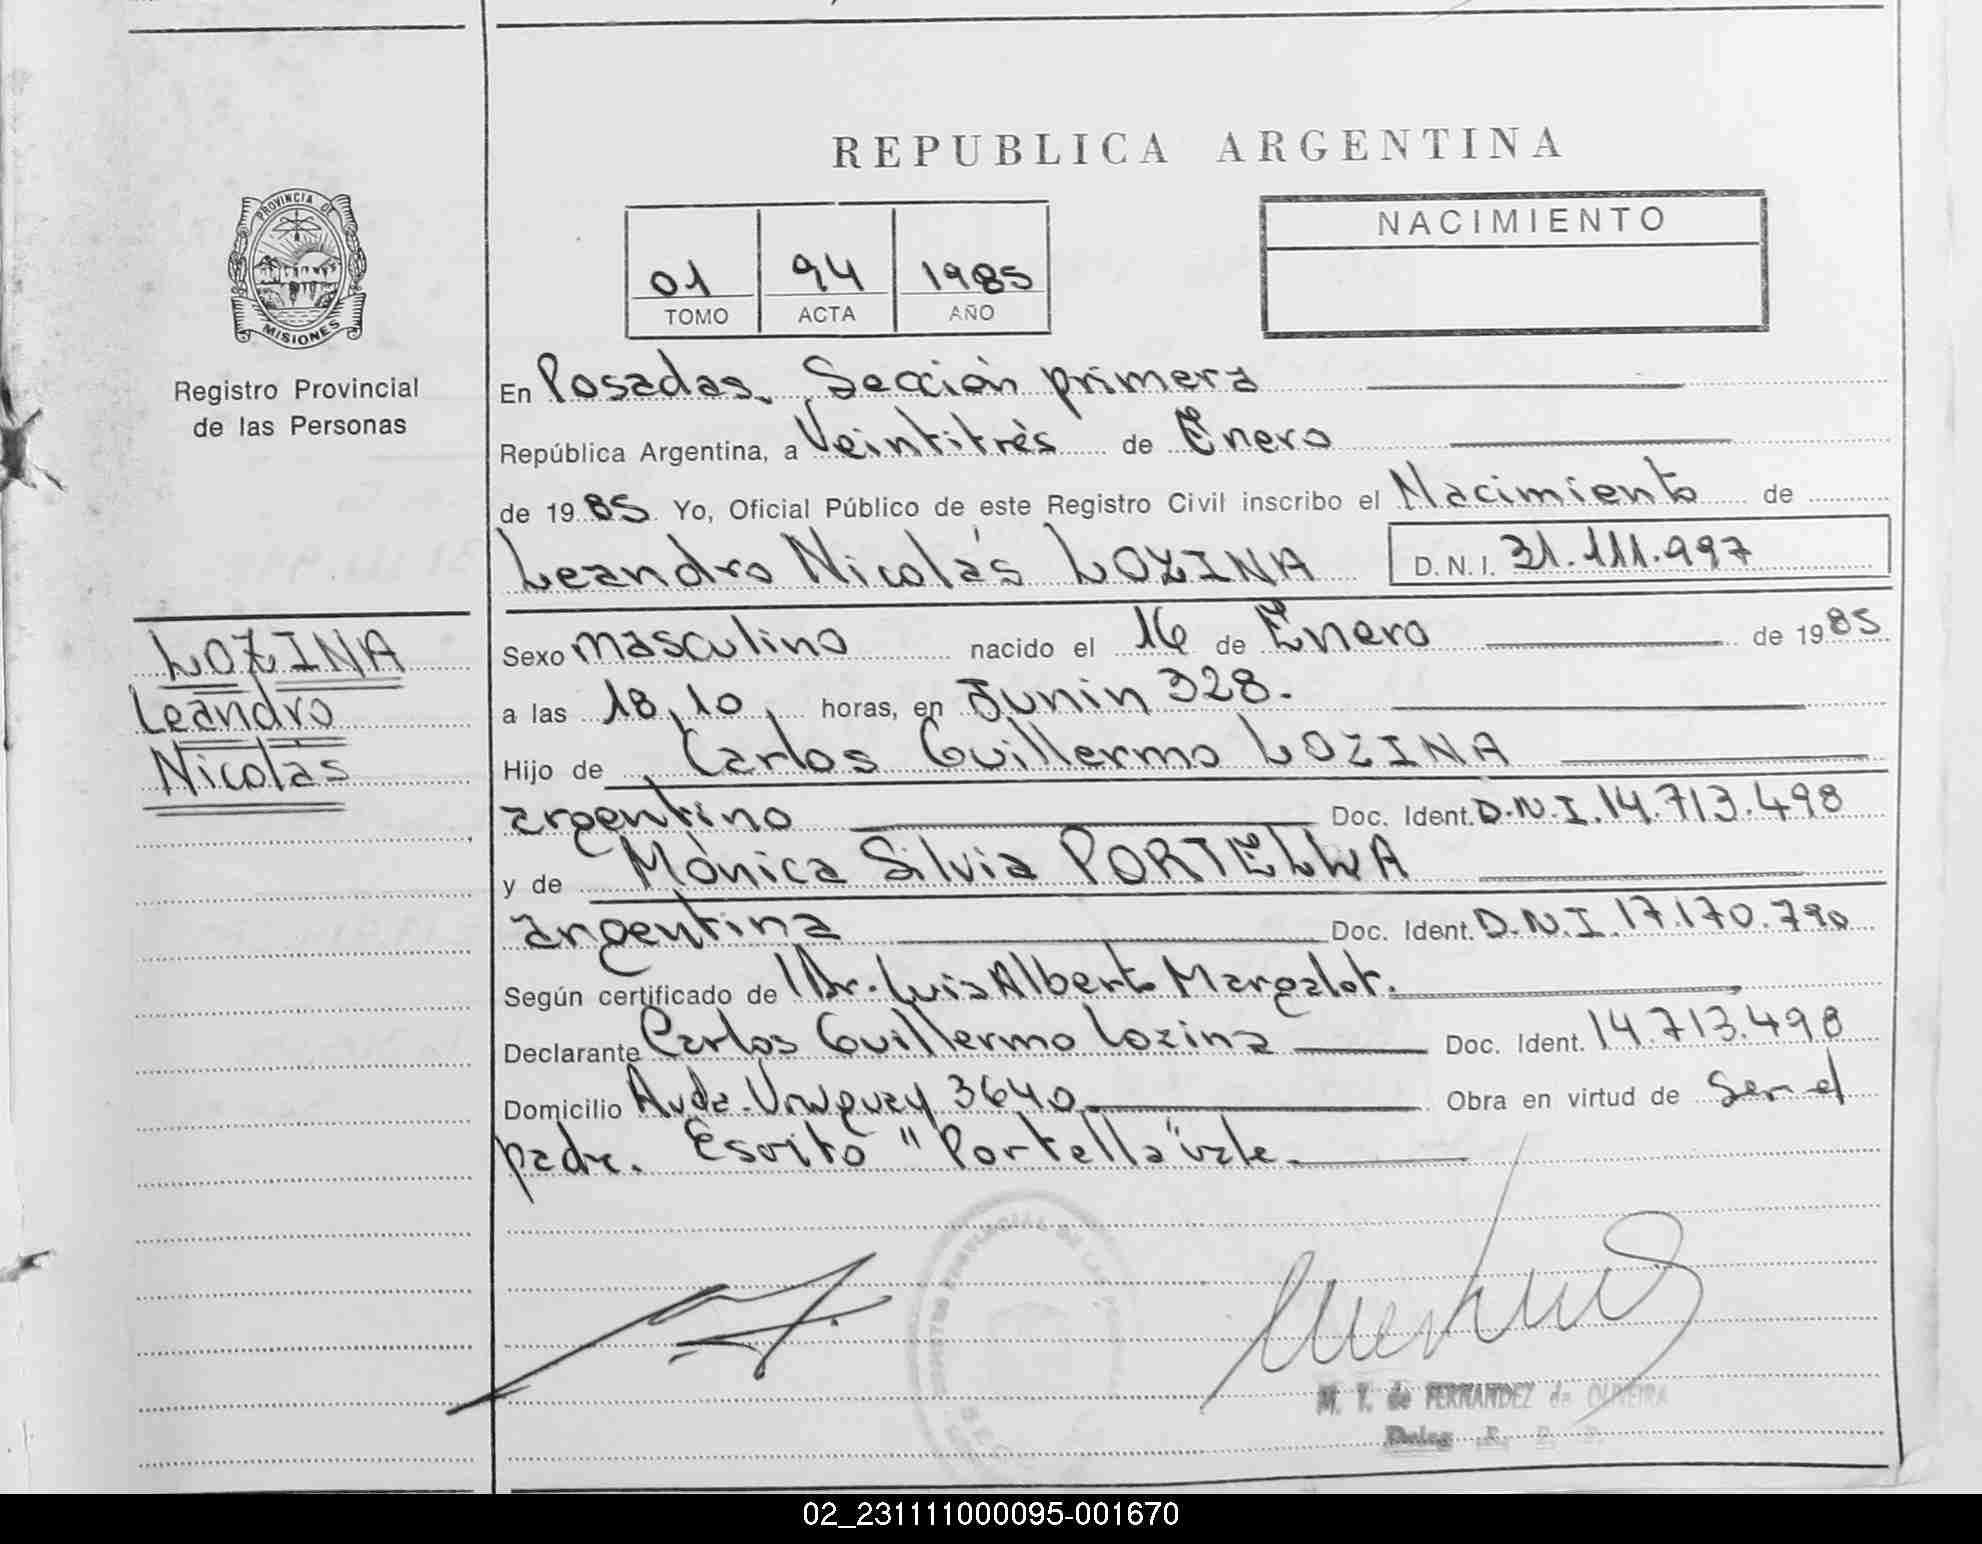 REPUBLICA ARGENTINA
PROVINCIA DE
MISIONES
Registro Provincial
de las Personas
01 94 1985
TOMO ACTA AÑO
NACIMIENTO
En Posadas, Sección primera
República Argentina, a Veintitrés de Enero
de 1985 Yo, Oficial Público de este Registro Civil inscribo el Nacimiento de
Leandro Nicolás LOZINA D.N.I. 31.111.997
LOZINA
Leandro
Nicolás
Sexo masculino nacido el 16 de Enero de 1985
a las 18,10, horas, en Junin 328.
Hijo de Carlos Guillermo LOZINA
argentino Doc. Ident. D.N.I. 14.713.498
y de Mónica Silvia PORTELLA
argentina Doc. Ident. D.N.I. 17.170.790
Según certificado de Dr. Luis Alberto Margalot.
Declarante Carlos Guillermo Lozina Doc. Ident. 14.713.498
Domicilio Avda. Uruguay 3640 Obra en virtud de ser el
padre. Escrito "Portella" vale.
M. T. de FERNANDEZ de OLIVEIRA
02_231111000095-001670